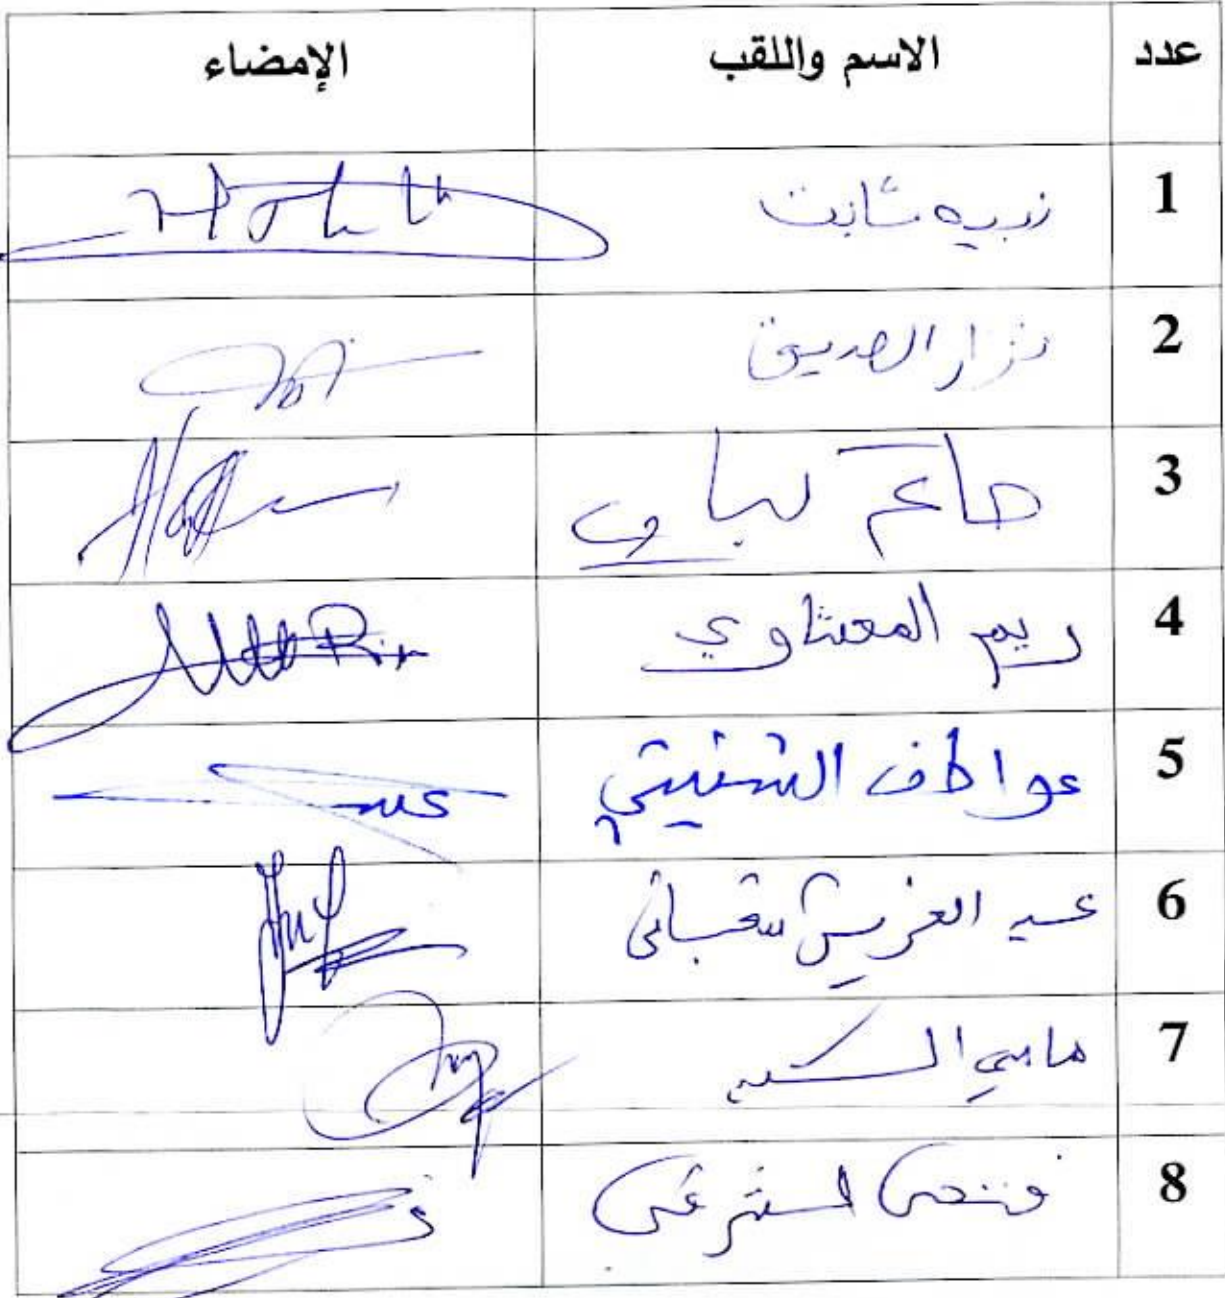 عدد الاسم واللقب الإمضاء
1 نبيه ثابت
2 نزار الصديق
3 حاتم لباوي
4 ريم المعشاوي
5 عواطف الشنيتي
6 عبد العزيز شعباني
7 هامي
8 فتحي الشرعي